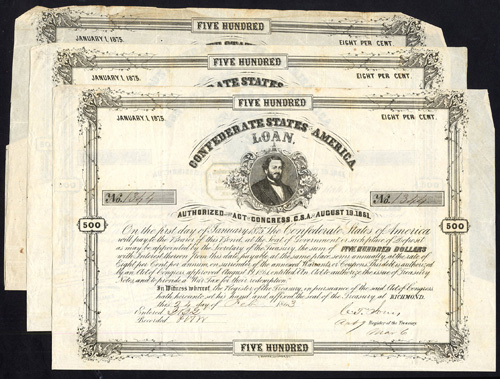 FIVE HUNDRED
JANUARY 1, 1875.
EIGHT PER CENT.
FIVE HUNDRED
JANUARY 1, 1875.
EIGHT PER CENT.
CONFEDERATE STATES
FIVE HUNDRED
JANUARY 1, 1875.
EIGHT PER CENT.
CONFEDERATE STATES AMERICA.
LOAN.
No. 1344
AUTHORIZED BY ACT OF CONGRESS, C.S.A. OF AUGUST 19, 1861.
500
500
On the first day of January 1875 The Confederate States of America
will pay to the Bearer of this Bond, at the seat of Government or such place of Deposit
as may be appointed by the Secretary of the Treasury, the sum of FIVE HUNDRED DOLLARS
with Interest thereon from this date, payable at the same place semi annually, at the rate of
Eight per Cent per annum on surrender of the annexed Warrants or Coupons. This debt is authorized
By an Act of Congress approved August 19, 1861, entitled An Act to authorize the issue of Treasury
Notes and to provide a War Tax for their redemption.
In Witness whereof the Register of the Treasury, in pursuance of the said Act of Congress
hath hereunto set his hand and affixed the seal of the Treasury at RICHMOND,
this day of
Entered
Recorded
Register of the Treasury
FIVE HUNDRED